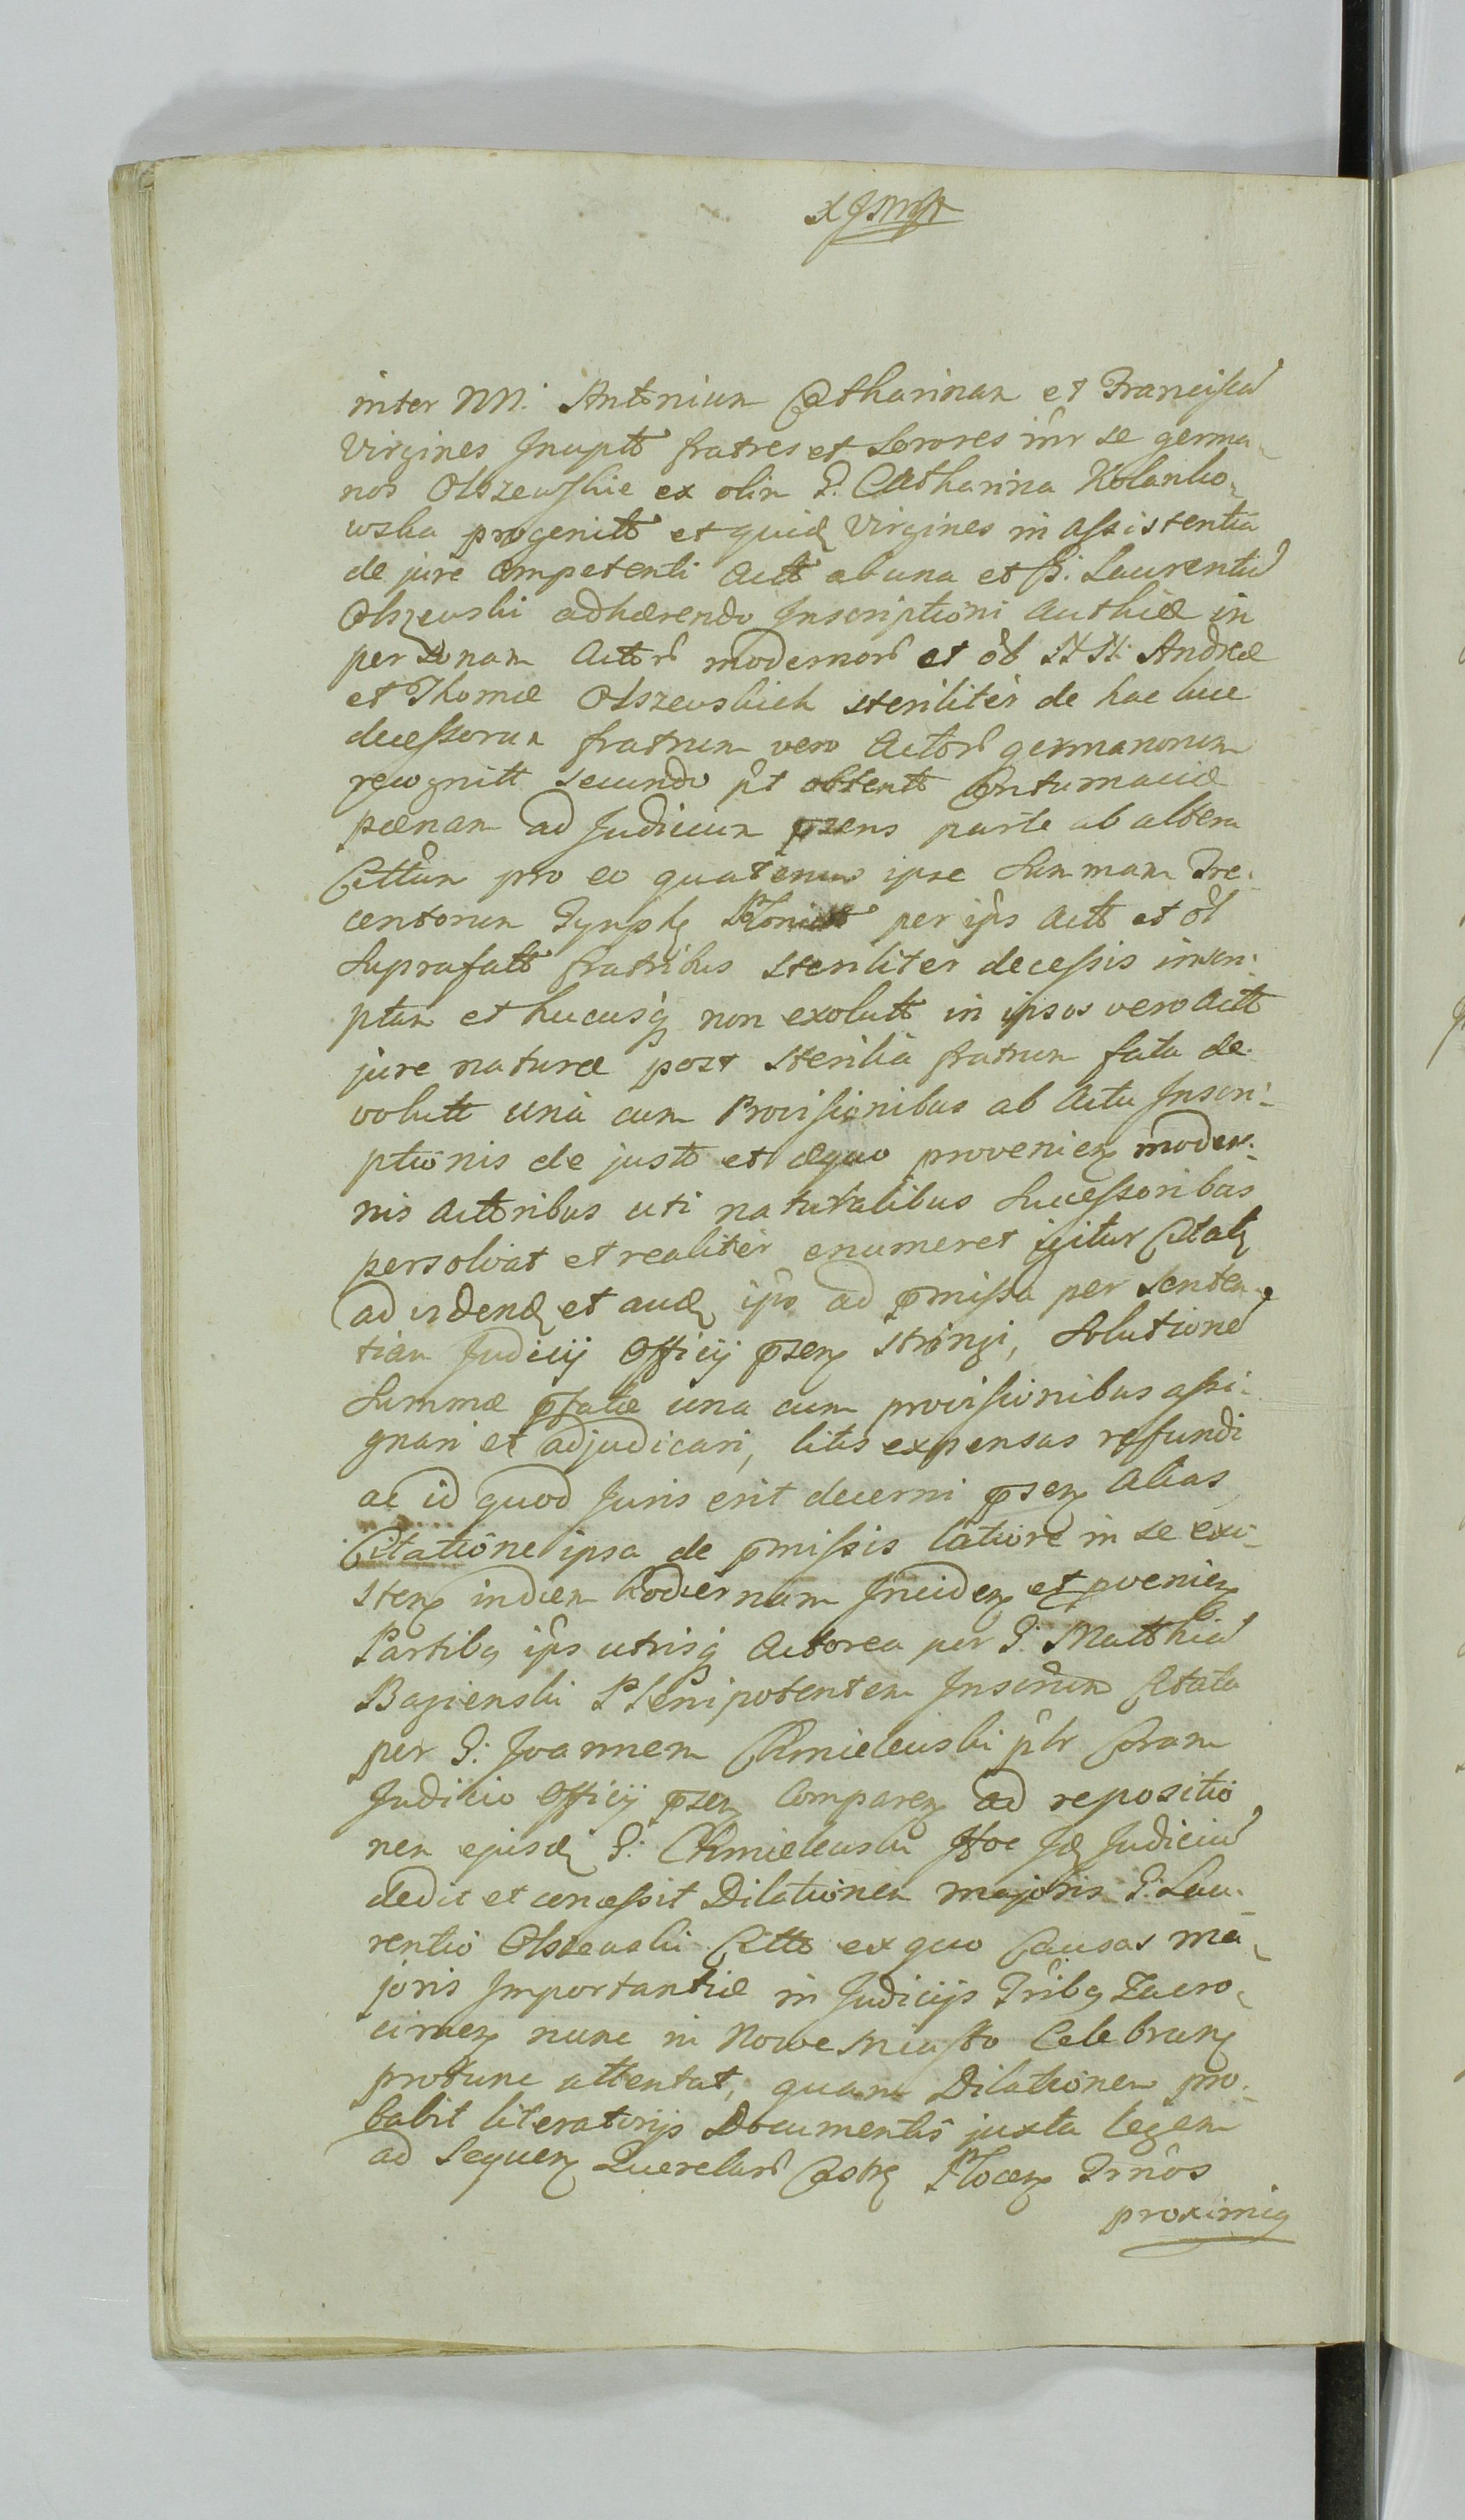 inter NN. Antonium Catharinam et Franciscã
Virgines Inuptt fratres et Sorores inr se germa-
nos Olszewskie ex olim G. Catharina Kolanko-
wska progenitt et quidq Virgines in assistentia
de jure competenti Actt ab una et G. Laurentiũ
Olszewski adhærendo Inscriptioni authicæ in
personam Actorũ modernorũ et ol. NN. Andreæ
et Thomæ Olszewskich steriliter de hac luce
decessorum fratrum vero Actorũ germanorum
recognitt secundo pt obtentt Contumaciæ
pœnam ad Judicium pñsens parte ab altera
Cittum pro eo quatenus ipse Summam Tre-
centorum Tympfq per ips Actt et ol
Suprafatt fratribus steriliter decessis inscri-
ptam et hucusq non exolutt in ipsos vero Actt
jure naturæ post sterilia fratrum fata de-
volutt una cum Provisionibus ab Actu Inscri-
ptionis de justo et æquo provenien moder-
nis Acttoribus uti naturalibus Successoribus
persolvat et realiter enumeret igitur Citatq
ad videndq et audq ips ad pmissa per senten-
tiam Judicij Officij pñsen stringi, Solutionẽ
Summæ pfatæ una cum provisionibus assi-
gnari et adjudicari, litis expensas refundi
ac id quod Juris erit decerni pñsen alias
Citatione ipsa de pmissis latiore in se exi-
sten in diem hodiernam Inciden et pvenien
Partibq ips utrisq Actorea per G. Matthiã
Bagienski Plenipotentem Citata
per G. Joannem Chmielewski plr Coram
Judicio Officij pñsen Comparen ad repositio
nem ejusdq G. Chmielewski Hoc Idq Judiciũ
dedit et concessit Dilationem majoris G. Lau-
rentio Olszewski Citto ex quo Causas ma-
joris Importantiæ in Judicijs Tribq Zacro-
cimen nunc in Nowe Miasto Celebran
protunc attentat, quam Dilationem pro-
babit literatorijs Documentis juxta legem
ad Sequen Querelarũ Castrq Plocen Trnos
proximiq